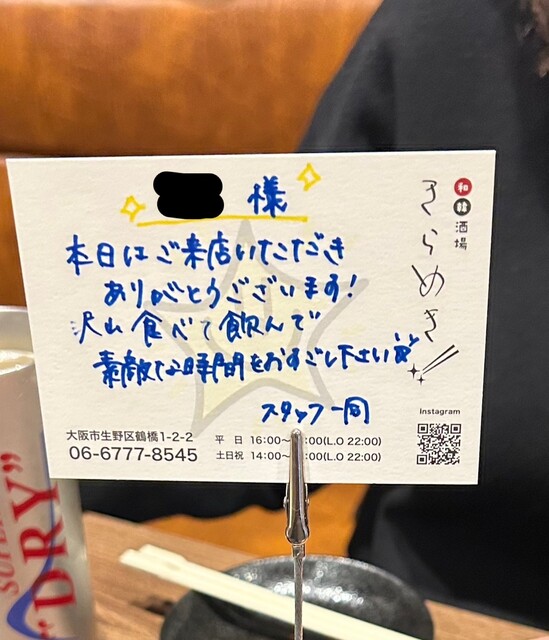 様
本日はご来店いただき
ありがとうございます!
沢山食べて飲んで
素敵な時間をおすごし下さい
スタッフ一同
和韓酒場
きらめき
Instagram
大阪市生野区鶴橋1-2-2
06-6777-8545
平 日 16:00〜 :00(L.O 22:00)
土日祝 14:00〜 :00(L.O 22:00)
"DRY"